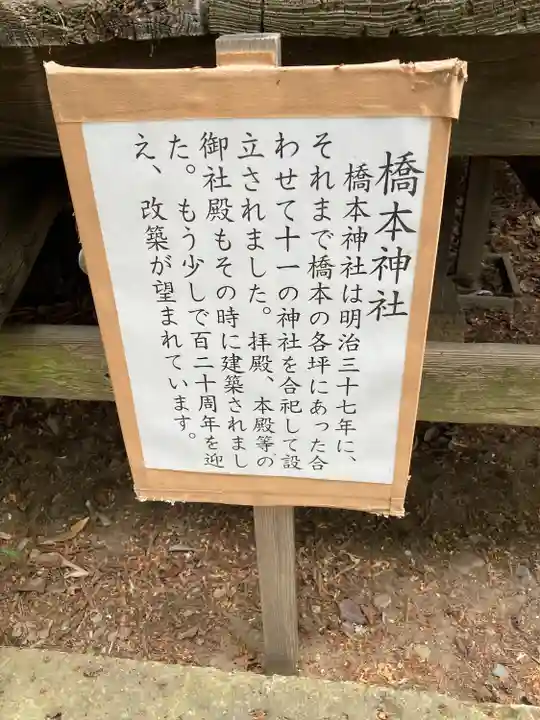 橋本神社
橋本神社は明治三十七年に、
それまで橋本の各坪にあった合
わせて十一の神社を合祀して設
立されました。拝殿、本殿等の
御社殿もその時に建築されまし
た。もう少しで百二十周年を迎
え、改築が望まれています。